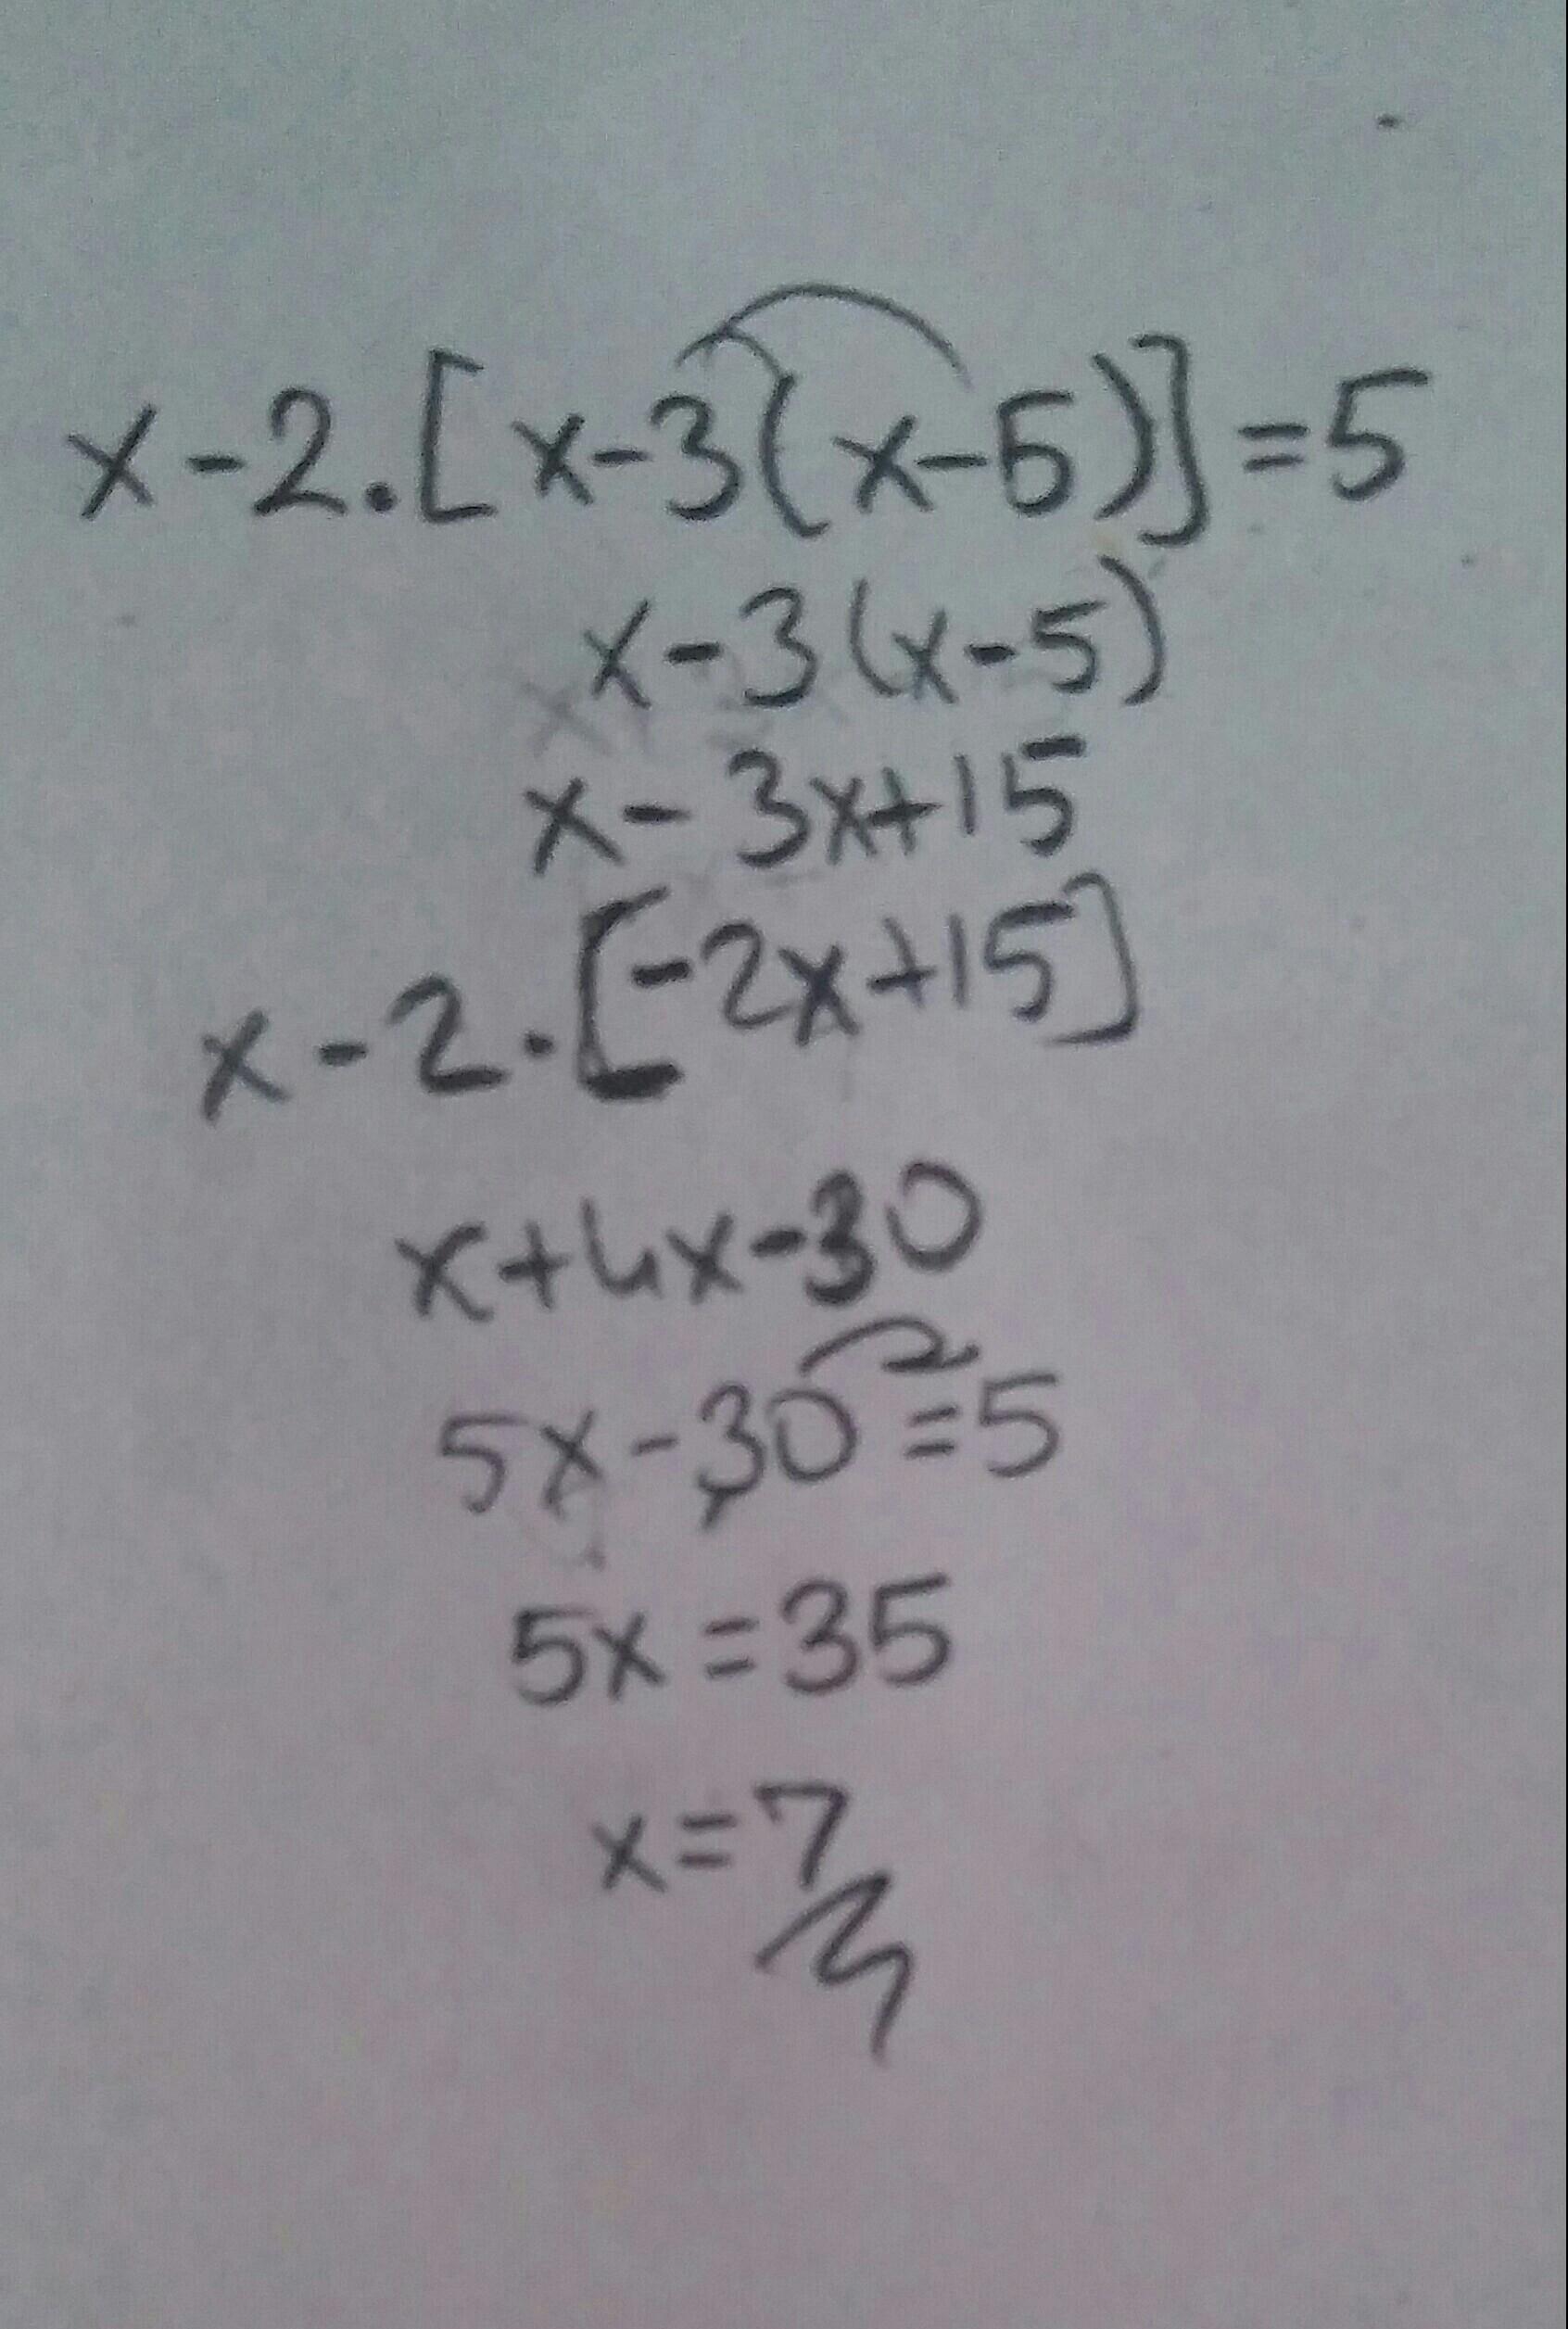 x-2.[x-3(x-5)]=5
x-3(x-5)
x-3x+15
x-2.[-2x+15]
x+4x-30
5x-30=5
5x=35
x=7